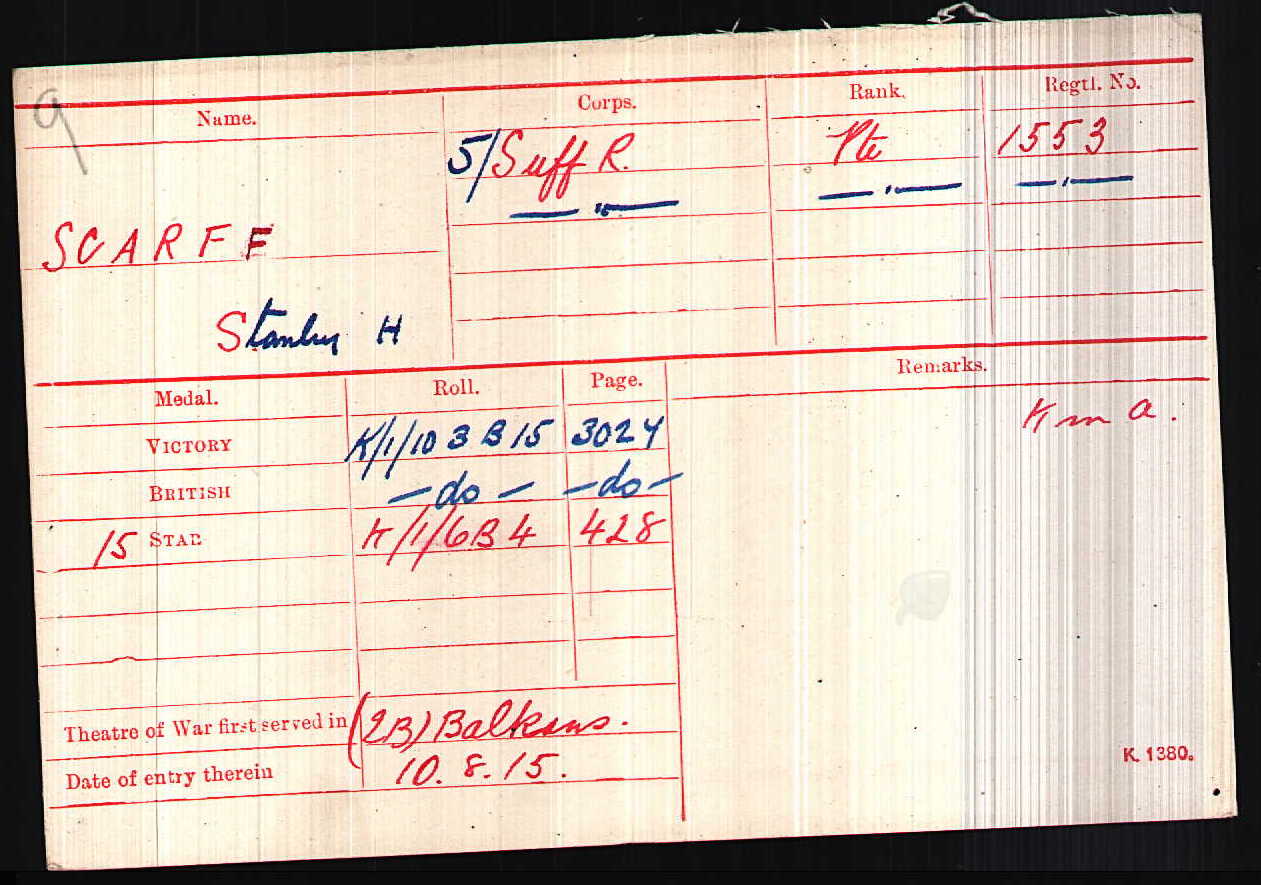 9
Name. Corps. Rank. Regtl. No.
5/Suff R. Pte 1553
— " — — " — — " —
SCARFF
Stanley H
Medal. Roll. Page. Remarks.
VICTORY K/1/103 B15 3024 K in a.
BRITISH — do — — do —
15 STAR K/1/6B4 428
Theatre of War first served in (2B) Balkans.
Date of entry therein 10. 8. 15.
K. 1380.